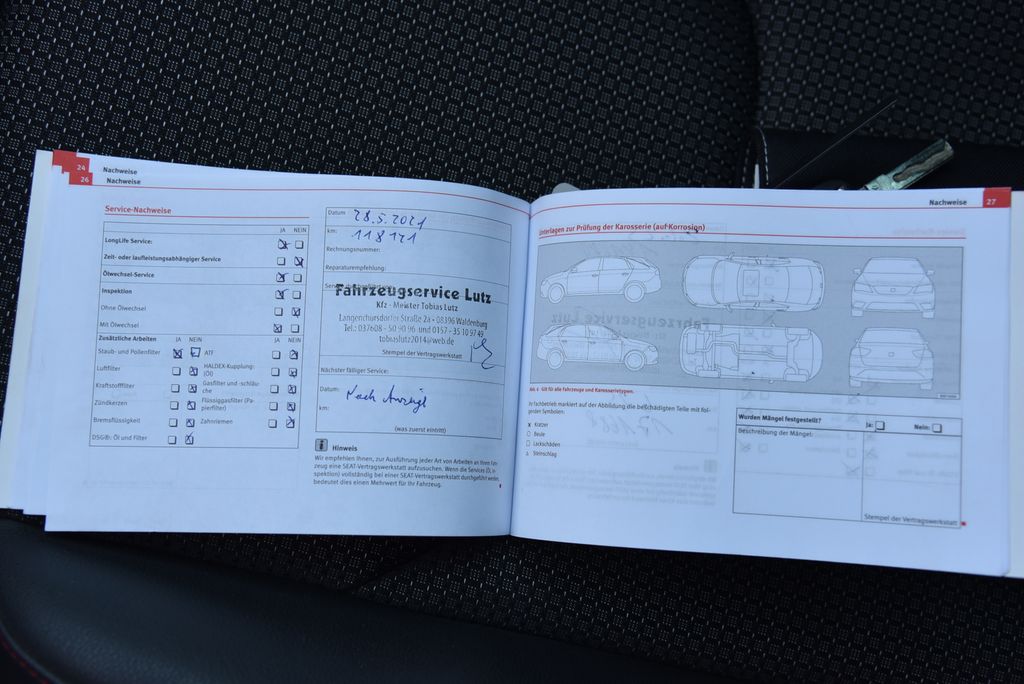 24 Nachweise
26 Nachweise
Service-Nachweise
JA NEIN
LongLife Service:
Zeit- oder laufleistungsabhängiger Service
Ölwechsel-Service
Inspektion
Ohne Ölwechsel
Mit Ölwechsel
Zusätzliche Arbeiten JA NEIN JA NEIN
Staub- und Pollenfilter ATF
Luftfilter HALDEX-Kupplung: (Öl)
Kraftstofffilter Gasfilter und -schläuche
Zündkerzen Flüssiggasfilter (Papierfilter)
Bremsflüssigkeit Zahnriemen
DSG®: Öl und Filter
Datum 28.5.2021
km: 118121
Rechnungsnummer:
Reparaturempfehlung:
Fahrzeugservice Lutz
Kfz - Meister Tobias Lutz
Langenchursdorfer Straße 2a • 08396 Waldenburg
Tel.: 037608 - 50 90 96 und 0157 - 35 10 97 49
tobiaslutz2014@web.de
Stempel der Vertragswerkstatt
Nächster fälliger Service:
Datum: Nach Anzeige
km:
(was zuerst eintritt)
Hinweis
Wir empfehlen Ihnen, zur Ausführung jeder Art von Arbeiten an Ihrem Fahr-
zeug eine SEAT-Vertragswerkstatt aufzusuchen. Wenn die Services (Öl, In-
spektion) vollständig bei einer SEAT-Vertragswerkstatt durchgeführt werden,
bedeutet dies einen Mehrwert für Ihr Fahrzeug.
Nachweise 27
Unterlagen zur Prüfung der Karosserie (auf Korrosion)
Abb. 6 Gilt für alle Fahrzeuge und Karosserietypen.
Ihr Fachbetrieb markiert auf der Abbildung die beschädigten Teile mit fol-
genden Symbolen:
x Kratzer
Beule
Lackschäden
Steinschlag
Wurden Mängel festgestellt? Ja: Nein:
Beschreibung der Mängel:
Stempel der Vertragswerkstatt